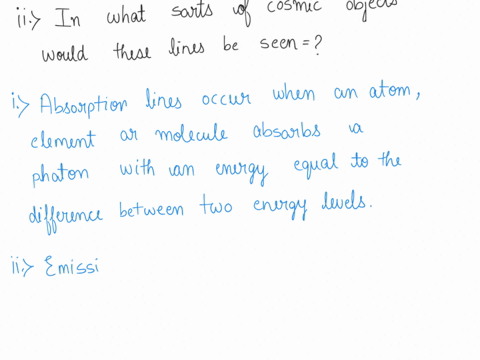 ii.> In what sorts of cosmic objects
would these lines be seen=?
i.> Absorption lines occur when an atom,
element or molecule absorbs a
photon with an energy equal to the
difference between two energy levels.
ii.> Emissi